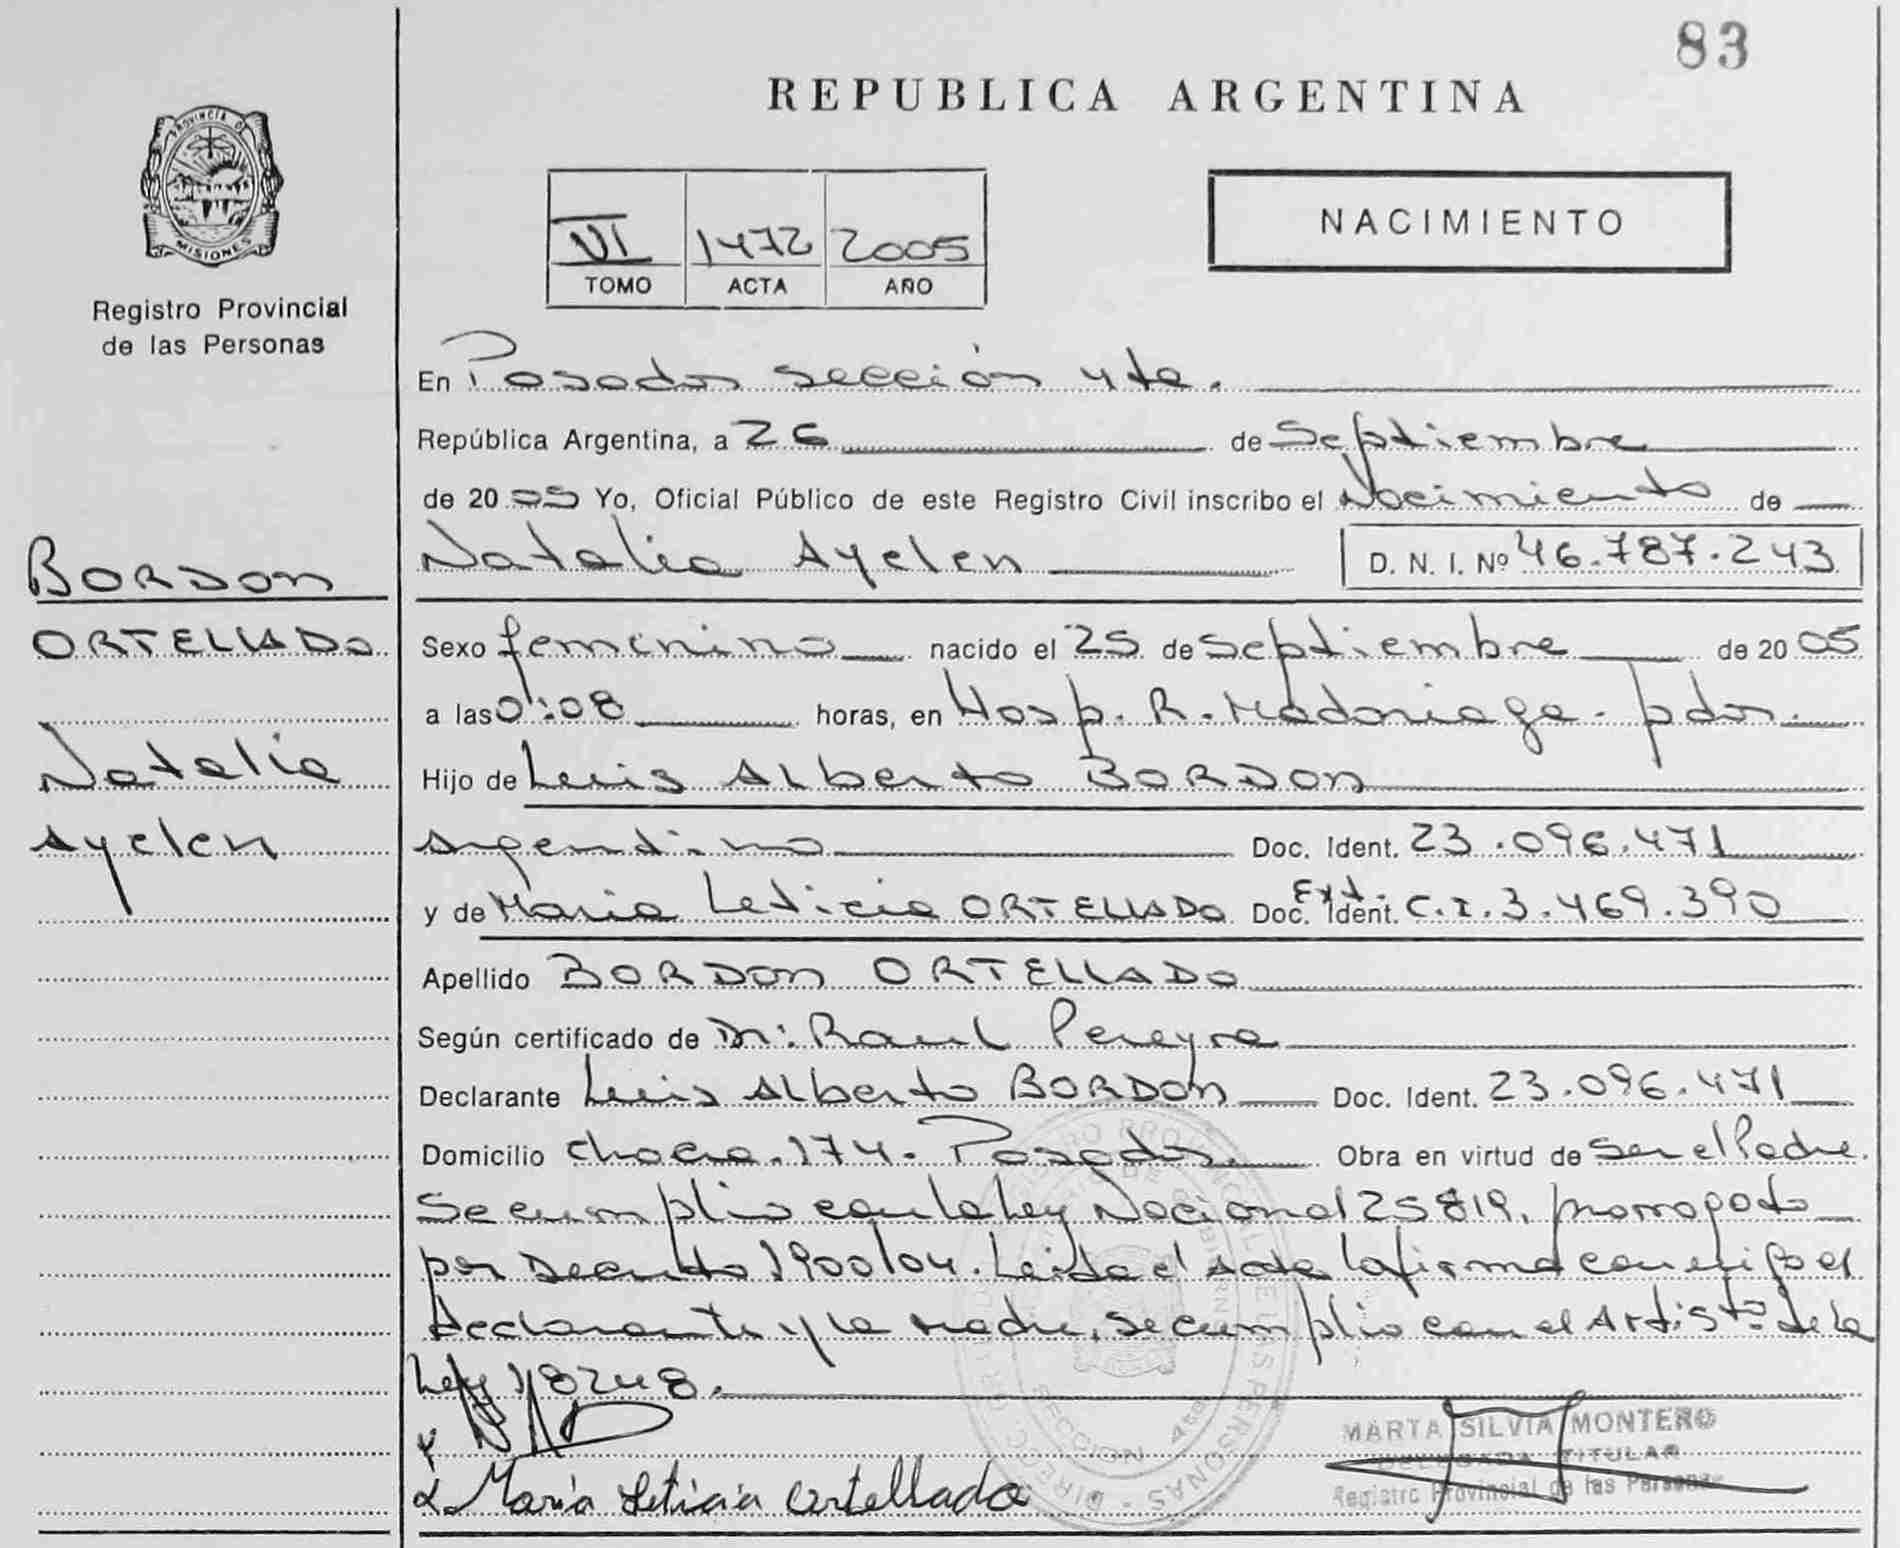 83
REPUBLICA ARGENTINA
PROVINCIA DE
MISIONES
Registro Provincial
de las Personas
VI 1472 2005
TOMO ACTA AÑO
NACIMIENTO
En Posadas sección 4ta.
República Argentina, a 26 de Septiembre
de 2005 Yo, Oficial Público de este Registro Civil inscribo el Nacimiento de
Natalia Ayelen D. N. I. Nº 46.787.243
BORDON
ORTELLADO
Natalia
Ayelen
Sexo femenino nacido el 25 de Septiembre de 2005
a las 0:08 horas, en Hosp. R. Madariaga. pdas.
Hijo de Luis Alberto BORDON
argentino Doc. Ident. 23.096.471
y de Maria Leticia ORTELLADO Doc. Ext. Ident. C.I. 3.469.390
Apellido BORDON ORTELLADO
Según certificado de Dr: Raul Pereyra
Declarante Luis Alberto BORDON Doc. Ident. 23.096.471
Domicilio chacra.174. Posadas Obra en virtud de ser el Padre.
Se cumplio con la Ley Nacional 25819, prorrogado
por Decreto 1900/04. Leida el Acta la firma conmigo el
declarante y la Madre, se cumplio con el Art. de la
Ley 18248.
Maria Leticia Ortellado
MARTA SILVIA MONTERO
DELEGADA TITULAR
Registro Provincial de las Personas
SECCION 4ta